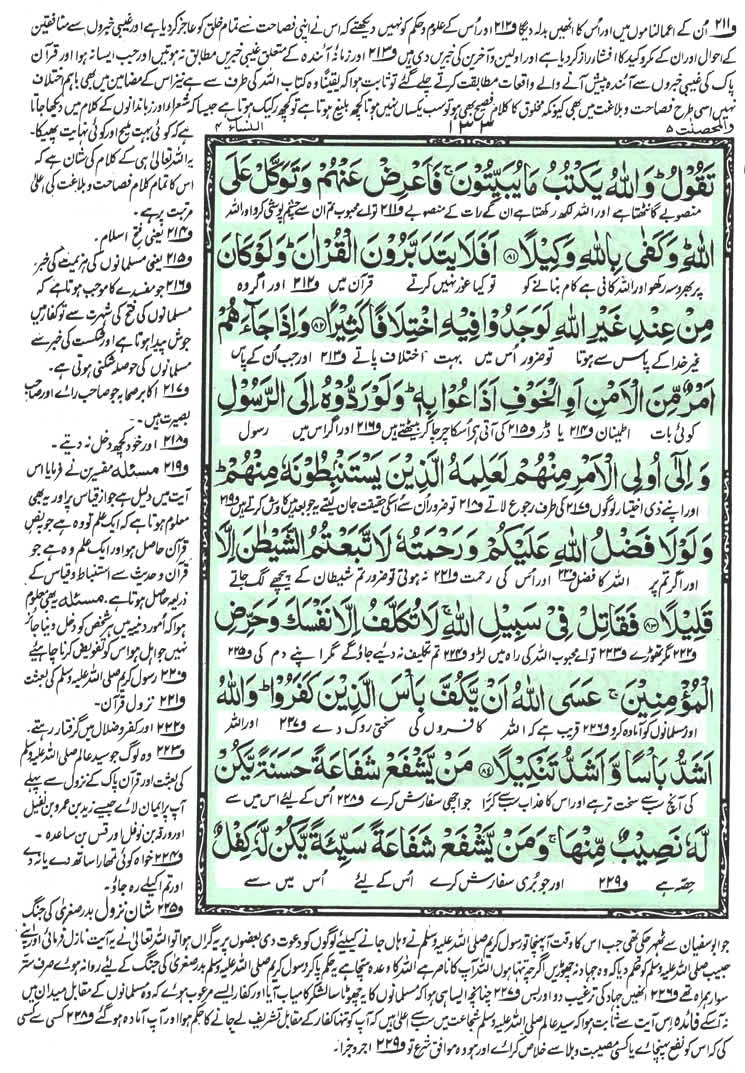 و۲۱۱ اُن کے اعمالناموں میں اور اُس کا انھیں بدلہ دیگا و۲۱۲ اور اُس کے علوم و حکم کو نہیں دیکھتے کہ اس نے اپنی فصاحت سے تمام خلق کو عاجز کردیا ہے اور غیبی خبروں سے منافقین
کے احوال اور ان کے مکر و کید کا افشار راز کردیا ہے اور اولین و آخرین کی خبریں دی ہیں و۲۱۳ اور زمانۂ آئندہ کے متعلق غیبی خبریں مطابق نہ ہوتیں اور جب ایسا نہ ہوا اور قرآن
پاک کی غیبی خبروں سے آئندہ پیش آنے والے واقعات مطابقت کرتے چلے گئے تو ثابت ہوا کہ یقیناً وہ کتاب اللہ کی طرف سے ہے نیز اس کے مضامین میں بھی باہم اختلاف
نہیں اسی طرح فصاحت و بلاغت میں بھی کیونکہ مخلوق کا کلام فصیح بھی ہو تو سب یکساں نہیں ہوتا کچھ بلیغ ہوتا ہے تو کچھ رکیک ہوتا ہے جیسا کہ شعراء اور زباندانوں کے کلام میں دیکھا جاتا
والمحصنت ۵ ۱۳۳ النساء ۴
تَقُوْلُ ؕ وَاللّٰهُ يَكْتُبُ مَا يُبَيِّتُوْنَ ۚ فَاَعْرِضْ عَنْهُمْ وَتَوَكَّلْ عَلَى
منصوبے گانٹھتا ہے اور اللہ لکھ رکھتا ہے ان کے رات کے منصوبے و۲۱۱ تو اے محبوب تم ان سے چشم پوشی کرو اور اللہ
اللّٰهِ ؕ وَكَفٰى بِاللّٰهِ وَكِيْلًا ﴿۸۱﴾ اَفَلَا يَتَدَبَّرُوْنَ الْقُرْاٰنَ ؕ وَلَوْ كَانَ
پر بھروسہ رکھو اور اللہ کافی ہے کام بنانے کو تو کیا غور نہیں کرتے قرآن میں و۲۱۲ اور اگر وہ
مِنْ عِنْدِ غَيْرِ اللّٰهِ لَوَجَدُوْا فِيْهِ اخْتِلَافًا كَثِيْرًا ﴿۸۲﴾ وَاِذَا جَآءَهُمْ
غیر خدا کے پاس سے ہوتا تو ضرور اُس میں بہت اختلاف پاتے و۲۱۳ اور جب اُن کے پاس
اَمْرٌ مِّنَ الْاَمْنِ اَوِ الْخَوْفِ اَذَاعُوْا بِهٖ ؕ وَلَوْ رَدُّوْهُ اِلَى الرَّسُوْلِ
کوئی بات اطمینان و۲۱۴ یا ڈر و۲۱۵ کی آتی ہے اُسکا چرچا کر بیٹھتے ہیں و۲۱۶ اور اگر اس میں رسول
وَاِلٰٓى اُولِى الْاَمْرِ مِنْهُمْ لَعَلِمَهُ الَّذِيْنَ يَسْتَنْۢبِطُوْنَهٗ مِنْهُمْ ؕ
اور اپنے ذی اختیار لوگوں و۲۱۷ کی طرف رجوع لاتے و۲۱۸ تو ضرور اُن سے اُسکی حقیقت جان لیتے یہ جو بعد میں کاوش کرتے ہیں و۲۱۹
وَلَوْلَا فَضْلُ اللّٰهِ عَلَيْكُمْ وَرَحْمَتُهٗ لَاتَّبَعْتُمُ الشَّيْطٰنَ اِلَّا
اور اگر تم پر اللہ کا فضل و۲۲۰ اور اُس کی رحمت و۲۲۱ نہ ہوتی تو ضرور تم شیطان کے پیچھے لگ جاتے
قَلِيْلًا ﴿۸۳﴾ فَقَاتِلْ فِيْ سَبِيْلِ اللّٰهِ ۚ لَا تُكَلَّفُ اِلَّا نَفْسَكَ وَحَرِّضِ
و۲۲۲ مگر تھوڑے و۲۲۳ تو اے محبوب اللہ کی راہ میں لڑو و۲۲۴ تم تکلیف نہ دیے جاؤ گے مگر اپنے دم کی و۲۲۵
الْمُؤْمِنِيْنَ ۚ عَسَى اللّٰهُ اَنْ يَّكُفَّ بَاْسَ الَّذِيْنَ كَفَرُوْا ؕ وَاللّٰهُ
اور مسلمانوں کو آمادہ کرو و۲۲۶ قریب ہے کہ اللہ کافروں کی سختی روک دے و۲۲۷ اور اللہ
اَشَدُّ بَاْسًا وَّاَشَدُّ تَنْكِيْلًا ﴿۸۴﴾ مَنْ يَّشْفَعْ شَفَاعَةً حَسَنَةً يَّكُنْ
کی آنچ سب سے سخت تر ہے اور اس کا عذاب سب سے کڑا جو اچھی سفارش کرے و۲۲۸ اُس کے لیئے اس میں سے
لَّهٗ نَصِيْبٌ مِّنْهَا ۚ وَمَنْ يَّشْفَعْ شَفَاعَةً سَيِّئَةً يَّكُنْ لَّهٗ كِفْلٌ
حصّہ ہے و۲۲۹ اور جو بُری سفارش کرے اُس کے لیئے اُس میں سے
ہے کہ کوئی بہت ملیح اور کوئی نہایت پھیکا۔
یہ اللہ تعالیٰ ہی کے کلام کی شان ہے کہ
اس کا تمام کلام فصاحت و بلاغت کی اعلیٰ
مرتبت پر ہے۔
و۲۱۴ یعنی فتح اسلام۔
و۲۱۵ یعنی مسلمانوں کی ہزیمت کی خبر
و۲۱۶ جو مفسدے کا موجب ہوتا ہے کہ
مسلمانوں کی فتح کی شہرت سے تو کفار میں
جوش پیدا ہوتا ہے اور شکست کی خبر سے
مسلمانوں کی حوصلہ شکنی ہوتی ہے۔
و۲۱۷ اکابر صحابہ جو صاحب رائے اور صاحب
بصیرت ہیں۔
و۲۱۸ اور خود کچھ دخل نہ دیتے۔
و۲۱۹ مسئلہ مفسرین نے فرمایا اس
آیت میں دلیل ہے جواز قیاس پر اور یہ بھی
معلوم ہوتا ہے کہ ایک علم تو وہ ہے جو بنص
قرآن حاصل ہو اور ایک علم وہ ہے جو
قرآن و حدیث سے استنباط و قیاس کے
ذریعہ حاصل ہوتا ہے۔ مسئلہ یہ بھی معلوم
ہوا کہ اُمور دینیہ میں ہر شخص کو دخل دینا جائز
نہیں جو اہل ہو اس کو تفویض کرنا چاہیئے
و۲۲۰ رسول کریم صلی اللہ علیہ وسلم کی بعثت
و۲۲۱ نزول قرآن۔
و۲۲۲ اور کفر و ضلال میں گرفتار رہتے۔
و۲۲۳ وہ لوگ جو سید عالم صلی اللہ علیہ وسلم
کی بعثت اور قرآن پاک کے نزول سے پہلے
آپ پر ایمان لائے جیسے زید بن عمرو بن نفیل
اور ورقہ بن نوفل اور قس بن ساعدہ۔
و۲۲۴ خواہ کوئی تمہارا ساتھ دے یا نہ دے
اور تم اکیلے رہ جاؤ۔
و۲۲۵ شانِ نزول بدر صغریٰ کی جنگ
جو ابوسفیان سے ٹھہر چکی تھی جب اس کا وقت آ پہنچا تو رسول کریم صلی اللہ علیہ وسلم نے وہاں جانے کیلئے لوگوں کو دعوت دی بعضوں پر یہ گراں ہوا تو اللہ تعالیٰ نے یہ آیت نازل فرمائی اور اپنے
حبیب صلی اللہ علیہ وسلم کو حکم دیا کہ وہ جہاد نہ چھوڑیں اگرچہ تنہا ہوں اللہ آپ کا ناصر ہے اللہ کا وعدہ سچا ہے یہ حکم پا کر رسول کریم صلی اللہ علیہ وسلم بدر صغریٰ کی جنگ کے لیئے روانہ ہوئے صرف ستر
سوار ہمراہ تھے و۲۲۶ انھیں جہاد کی ترغیب دو اور بس و۲۲۷ چنانچہ ایسا ہی ہوا کہ مسلمانوں کا یہ چھوٹا سا لشکر کامیاب آیا اور کفار ایسے مرعوب ہوئے کہ وہ مسلمانوں کے مقابل میدان میں
نہ آسکے فائدہ اس آیت سے ثابت ہوا کہ سید عالم صلی اللہ علیہ وسلم شجاعت میں سب سے اعلیٰ ہیں کہ آپ کو تنہا کفار کے مقابل تشریف لے جانے کا حکم ہوا اور آپ آمادہ ہو گئے و۲۲۸ کسی سے کسی
کی کہ اس کو نفع پہنچائے یا کسی مصیبت و بلا سے خلاص کرائے اور ہو وہ موافق شرع تو و۲۲۹ اجر و جزا۔